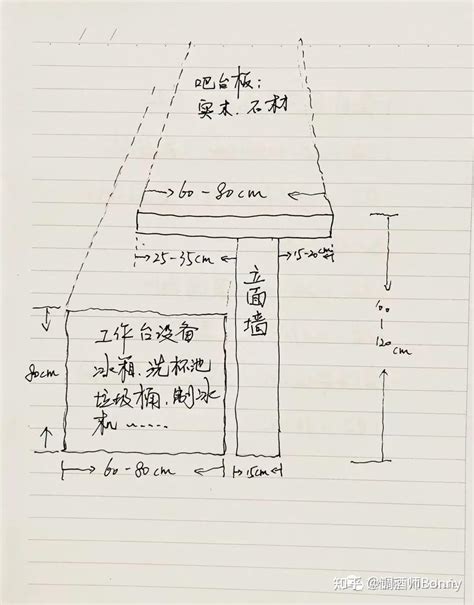 吧台板:
实木.石材
60-80cm
25-35cm
15-20cm
立面墙
100-120cm
工作台设备
冰箱.洗杯池
垃圾桶.制冰
机......
80cm
60-80cm
15cm
知乎 @调酒师Bonny